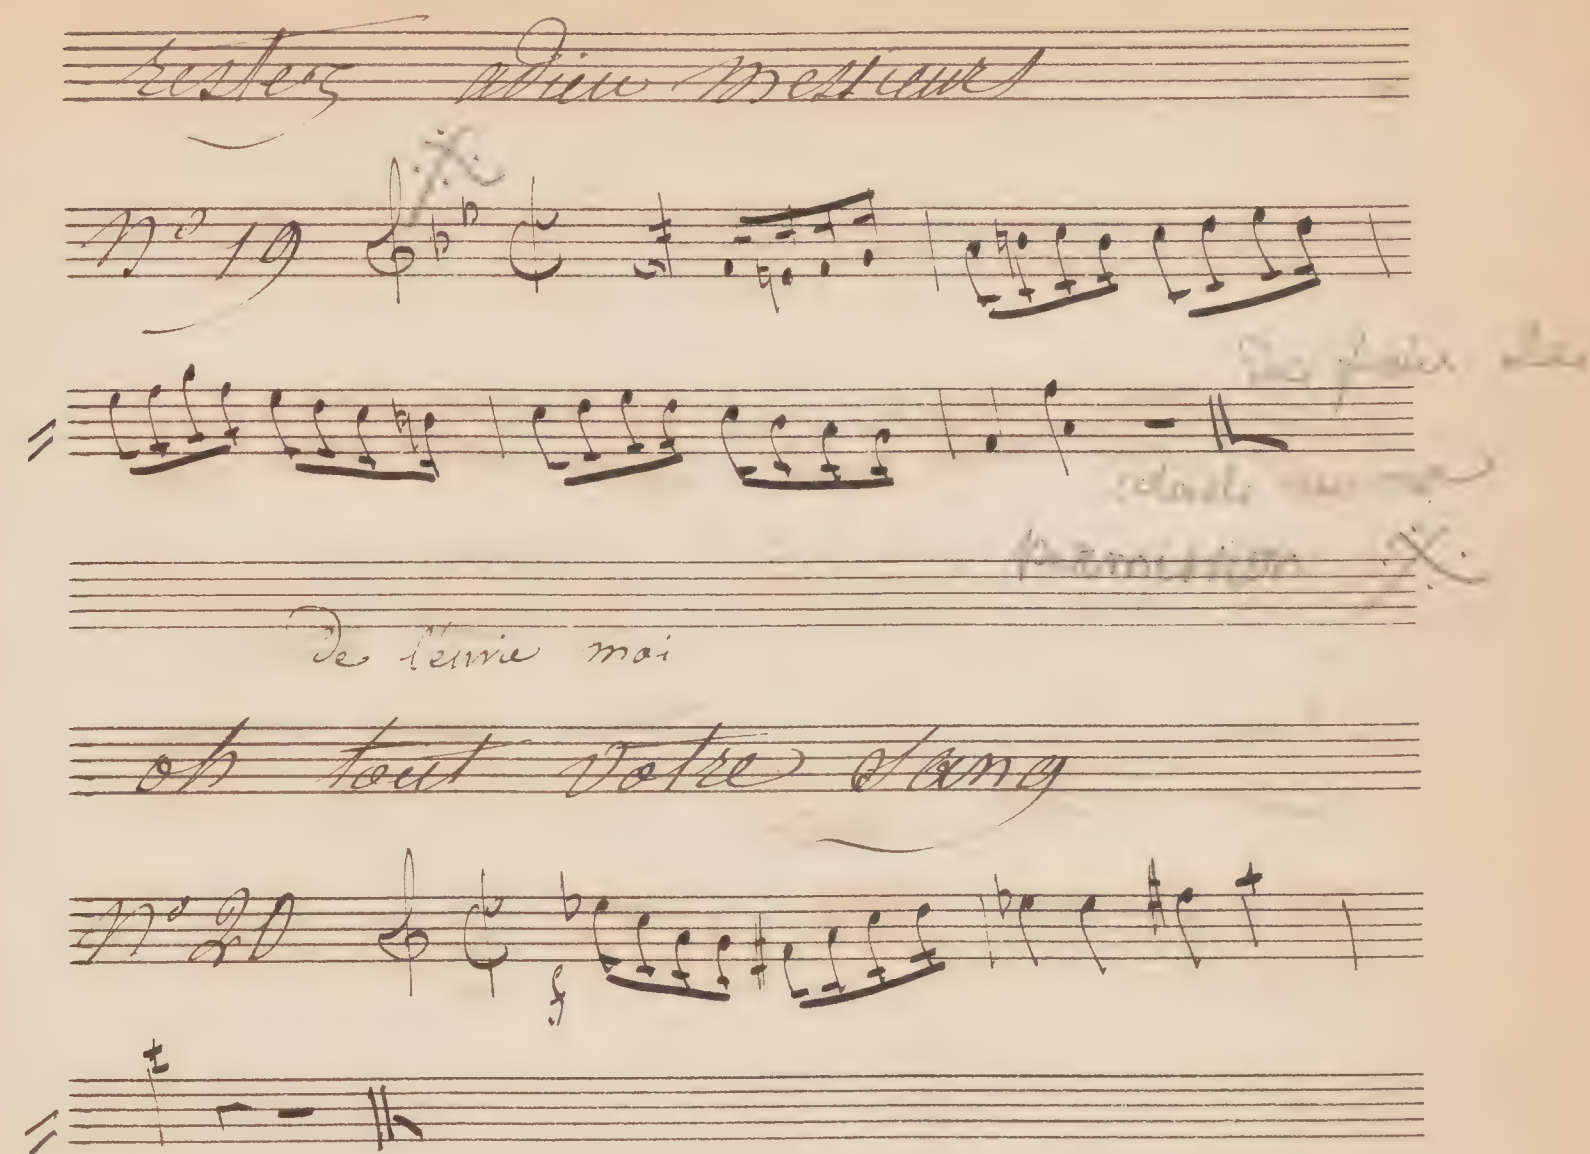 restez adieu messieurs
N° 19
permission
De l'envie moi
oh tout votre sang
N° 20
f